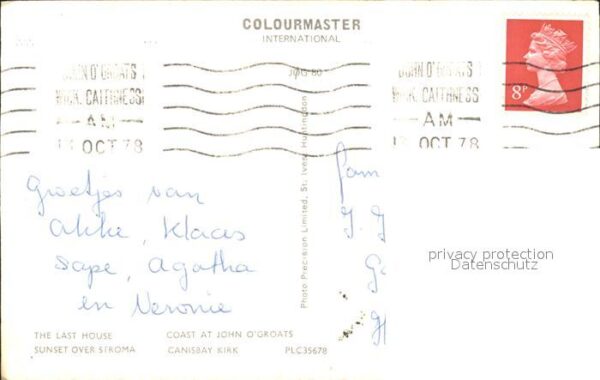 COLOURMASTER
INTERNATIONAL
JOHN O'GROATS
WICK. CAITHNESS
AM
OCT 78
JOHN O'GROATS
WICK. CAITHNESS
AM
OCT 78
8P
Groetjes van
Akke, Klaas
Sape, Agatha
en
Photo Precision Limited, St. Ives, Huntingdon
Fam
privacy protection
Datenschutz
THE LAST HOUSE COAST AT JOHN O'GROATS
SUNSET OVER STROMA CANISBAY KIRK PLC35678